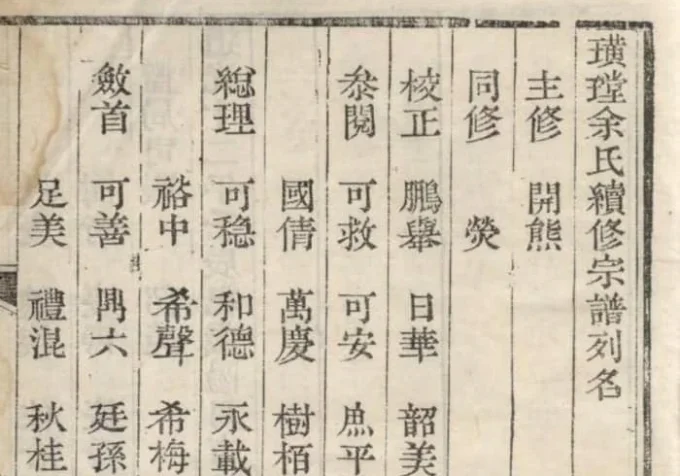 璜瑆余氏續修宗譜列名
主修 開熊
同修 熒
校正 鵬舉 日華 韶美
叅閱 可救 可安 庶平
國倩 萬慶 樹栢
總理 可稳 和德 永載
裕中 希聲 希梅
斂首 可善 六 廷孫
足美 禮混 秋桂